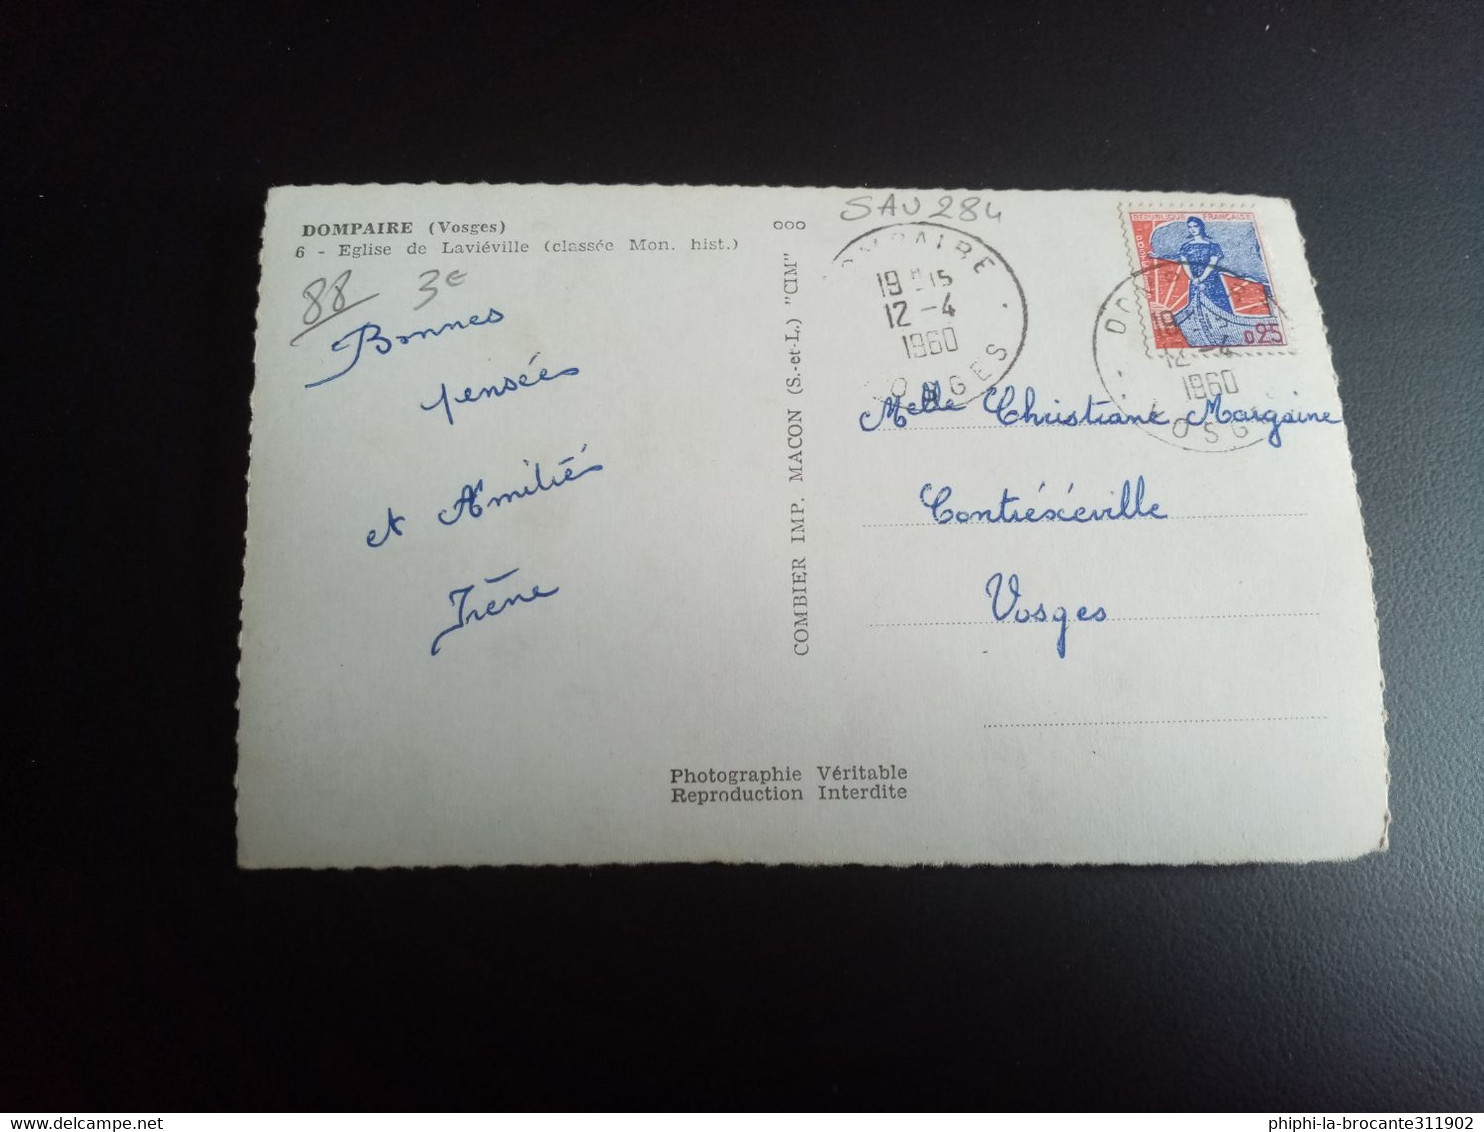 DOMPAIRE (Vosges)
6 - Eglise de Laviéville (classée Mon. hist.)
88 3€
Bonnes
pensées
et Amitiés
Irène
COMBIER IMP. MACON (S.-et-L.) "CIM"
SAU 284
DOMPAIRE
19 15
12-4
1960
VOSGES
REPUBLIQUE FRANÇAISE
0,25
19 15
12-4
1960
Melle Christiane Margaine
Contréxéville
Vosges
Photographie Véritable
Reproduction Interdite
delcampe.net
phiphi-la-brocante311902